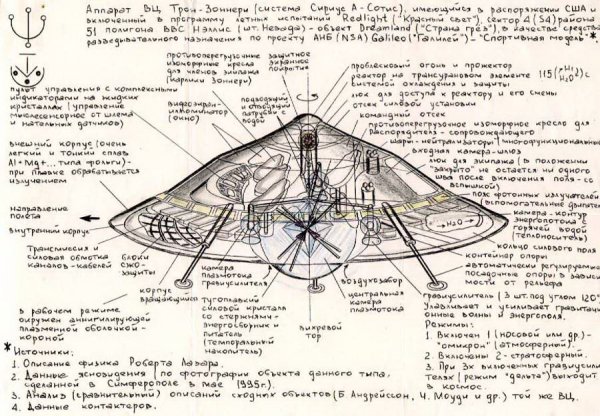 Аппарат ВЦ Трон-Зоннери (система Сириус А-Сотис), имеющийся в распоряжении США и
включенный в программу летных испытаний "Redlight" ("Красный свет"), сектор 4 (S4) района
51 полигона ВВС Нэллис (шт. Невада) - объект Dreamland ("Страна грёз"), в качестве средства
разведывательного назначения по проекту АНБ (NSA) Galileo ("Галилей") - "Спортивная модель" *.
противоперегрузочные
изоморфные кресла
для членов экипажа
(карлики Зоннери)
защитное
экранное
покрытие
проблесковый огонь и прожектор
реактор на трансурановом элементе 115 с
системой охлаждения и защиты
люк для доступа к реактору и его смены
отсек силовой установки
командный отсек
пульт управления с комплексными
индикаторами на жидких
кристаллах (управление
мыслесенсорное от шлема
и натальных датчиков)
видеоэкран-
иллюминатор
(окно)
подводящий
и отводящий
патрубки с
водой
противоперегрузочное изоморфное кресло для
Распорядителя - сопровождающего
шары-нейтрализаторы (многофункциональные)
входная камера-шлюз
люк для экипажа (в положении
"закрыто" не остается ни одного
шва после включения поля - со
вспышкой)
внешний корпус (очень
легкий и тонкий сплав
Al + Mg + ... типа фольги) -
при плавке обрабатывается
излучением
пояс фотонных излучателей
(вспомогательные двигатели)
камера-контур
энергопотока с
горячей водой
(теплоноситель)
направление
полета
H₂O
внутренний корпус
кольцо силового поля
Трансмиссия и
силовая обмотка
каналов-кабелей
блоки
СЖО-
защиты
контейнер опоры
автоматически регулируемые
посадочные опоры в зависи-
мости от рельефа
камера
плазмотока
гравиусилителя
воздухозабор
корпус
вращающийся
тугоплавкий
силовой кристалл
со стержнями-
энергосборник и
питатель
(темпоральный
накопитель)
вихревой
тор
центральная
камера
плазмотока
гравиусилитель (3 шт. под углом 120°)
Улавливает и усиливает гравитаци-
онные волны и энергополя.
Режимы:
1. Включен 1 (носовой или др.) -
"омикрон" (атмосферный).
2. Включены 2 - стратосферный.
3. При 3х включенных гравиусили-
телях (режим "дельта") выходит
в космос.
в рабочем режиме
окружен аннигилирующей
плазменной оболочкой-
короной
* Источники:
1. Описание физика Роберта Лазара.
2. Данные ясновидения (по фотографии объекта данного типа,
сделанной в Симферополе в мае 1995г.).
3. Анализ (сравнительный) описаний сходных объектов (Б. Андрейссон, Ч. Моуди и др.) той же ВЦ.
4. Данные контактеров.